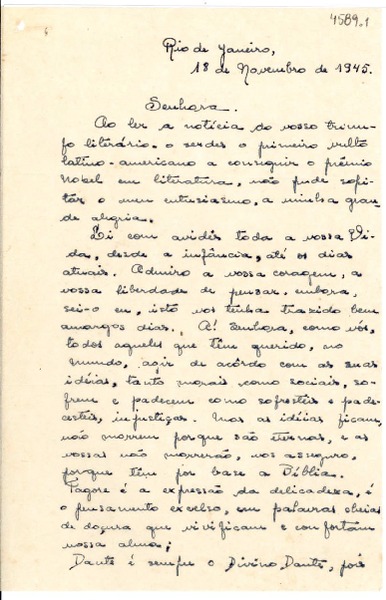 4589.1
Rio de Janeiro,
18 de Novembro de 1945.
Senhora.
Ao ler a notícia do vosso triun-
fo literário, o serdes o primeiro vulto
latino-americano a conseguir o prêmio
Nobel em literatura, não pude sopi-
tar o meu entusiasmo, a minha gran-
de alegria.
Li com avidês toda a vossa Vi-
da, desde a infância, até os dias
atuais. Admiro a vossa coragem, a
vossa liberdade de pensar, embora,
sei-o eu, isto vos tenha trazido bem
amargos dias. A! Senhora, como vós,
todos aqueles que têm querido, no
mundo, agir de acôrdo com as suas
idéias, tanto morais como sociais, so-
frem e padecem como sofrestes e pade-
cestes, injustiças. Mas as idéias ficam,
não morrem porque são eternas, e as
vossas não morrerão, vos asseguro,
porque têm por base a Bíblia.
Tagore é a expressão da delicadeza, é
o pensamento excelso, em palavras cheias
de doçura que vivificam e confortam
nossa alma;
Dante é sempre o Divino Dante, pois